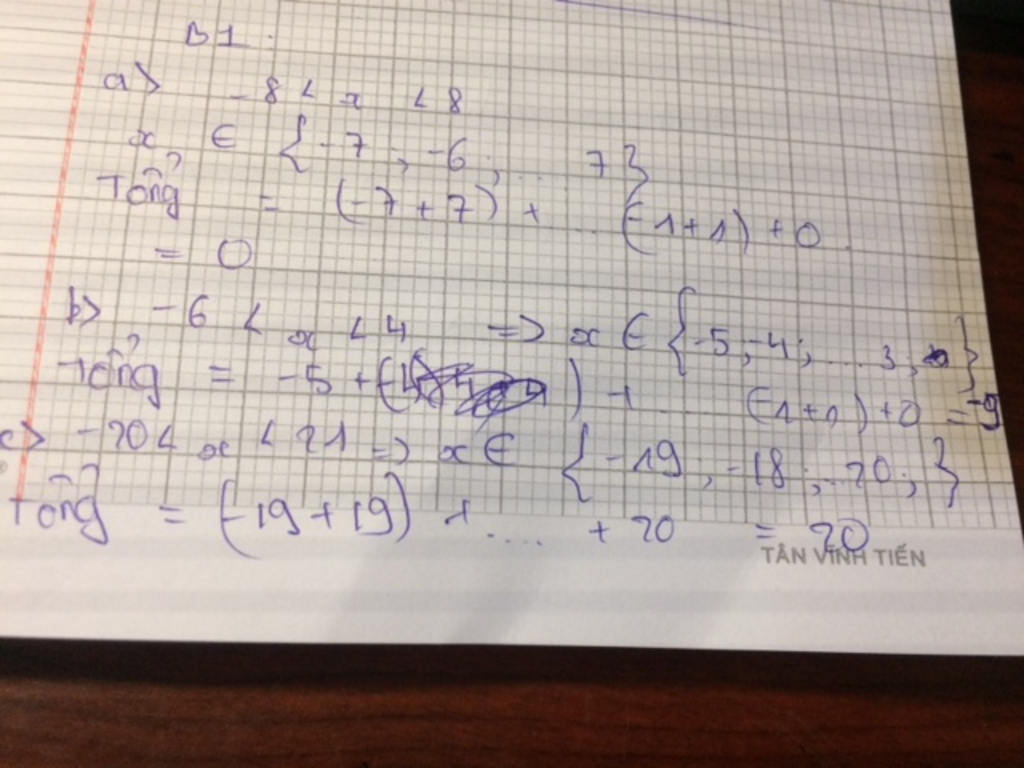 B1.
a> -8 < x < 8
x ∈ {-7 ; -6 ; ... 7}
Tổng = (-7 + 7) + ... (-1+1) + 0
= 0
b> -6 < x < 4 => x ∈ {-5 ; -4 ; ... 3 ; }
Tổng = -5 + (-4) + .... (-1+1) + 0 = -9
c> -20 < x < 21 => x ∈ {-19 ; -18 ; .. 20 ; }
Tổng = (-19 + 19) + .... + 20 = 20
TÂN VĨNH TIẾN